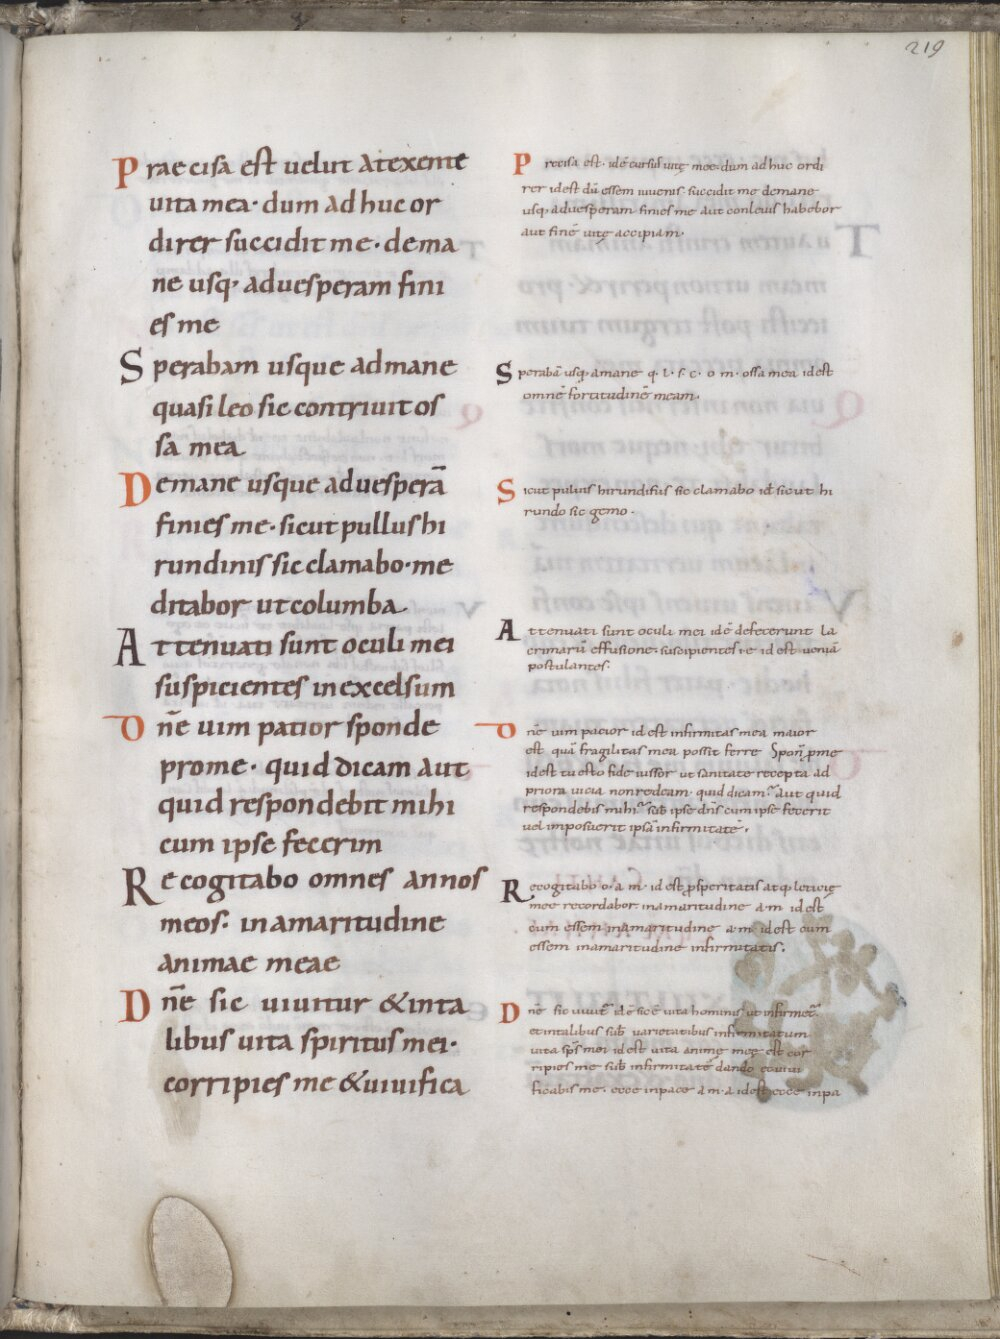 219
Prae cisa est uelut atexente
uita mea· dum ad huc or
direr succidit me· dema
ne usq; aduesperam fini
es me
Sperabam usque admane
quasi leo sic contriuit os
sa mea
Demane usque aduesperā
finies me· sicut pullus hi
rundinis sic clamabo· me
ditabor ut columba
Attenuati sunt oculi mei
suspicientes in excelsum
Dn̄e uim patior sponde
prome· quid dicam aut
quid respondebit mihi
cum ipse fecerim
Recogitabo omnes annos
meos· in amaritudine
animae meae
Dn̄e sic uiuitur &inta
libus uita spiritus mei·
corripies me &uiuifica
Precisa est· idē cursus uitę mee· dum adhuc ordi
rer idest dū essem iuuenis succidit me demane
usq; aduesperam finies me aut conleuis habebor
aut finē uitę accipiam·
Sperabā usq; amane q· l· s· c· o m· ossa mea idest
omnē fortitudinē meam·
Sicut pullus hirundinis sic clamabo id sicut hi
rundo sic gemo·
Attenuati sunt oculi mei idē defecerunt la
crimarū effusione· suscipientes· i·e· id est ueniā
postulantes·
Dn̄e uim pacior id est infirmitas mea maior
est quā fragilitas mea possit ferre Spon p̱me
idest tu esto fide iussor ut sanitate recepta ad
priora uicia non redeam· quid dicam· aut quid
respondebis mihi· sub ipse dn̄s cum ipse fecerit
uel imposuerit ipsā infirmitatē·
Recogitabo· o· a· m· id est p̱speritatis atq; leticię
mee recordabor in amaritudine a·m· id est
cum essem in amaritudine a·m· idest cum
essem in amaritudine infirmitatis·
Dn̄e sic uiuit̄ idē sic ē uita hominis ut infirmet̄
et intalibus sub̄ uarietatibus infirmitatum
uita sp̄s mei id est uita animę meę est cor
ripies me sub̄ infirmitatē dando et uiui
ficabis me· ecce inpace a·m·a idest ecce inpa